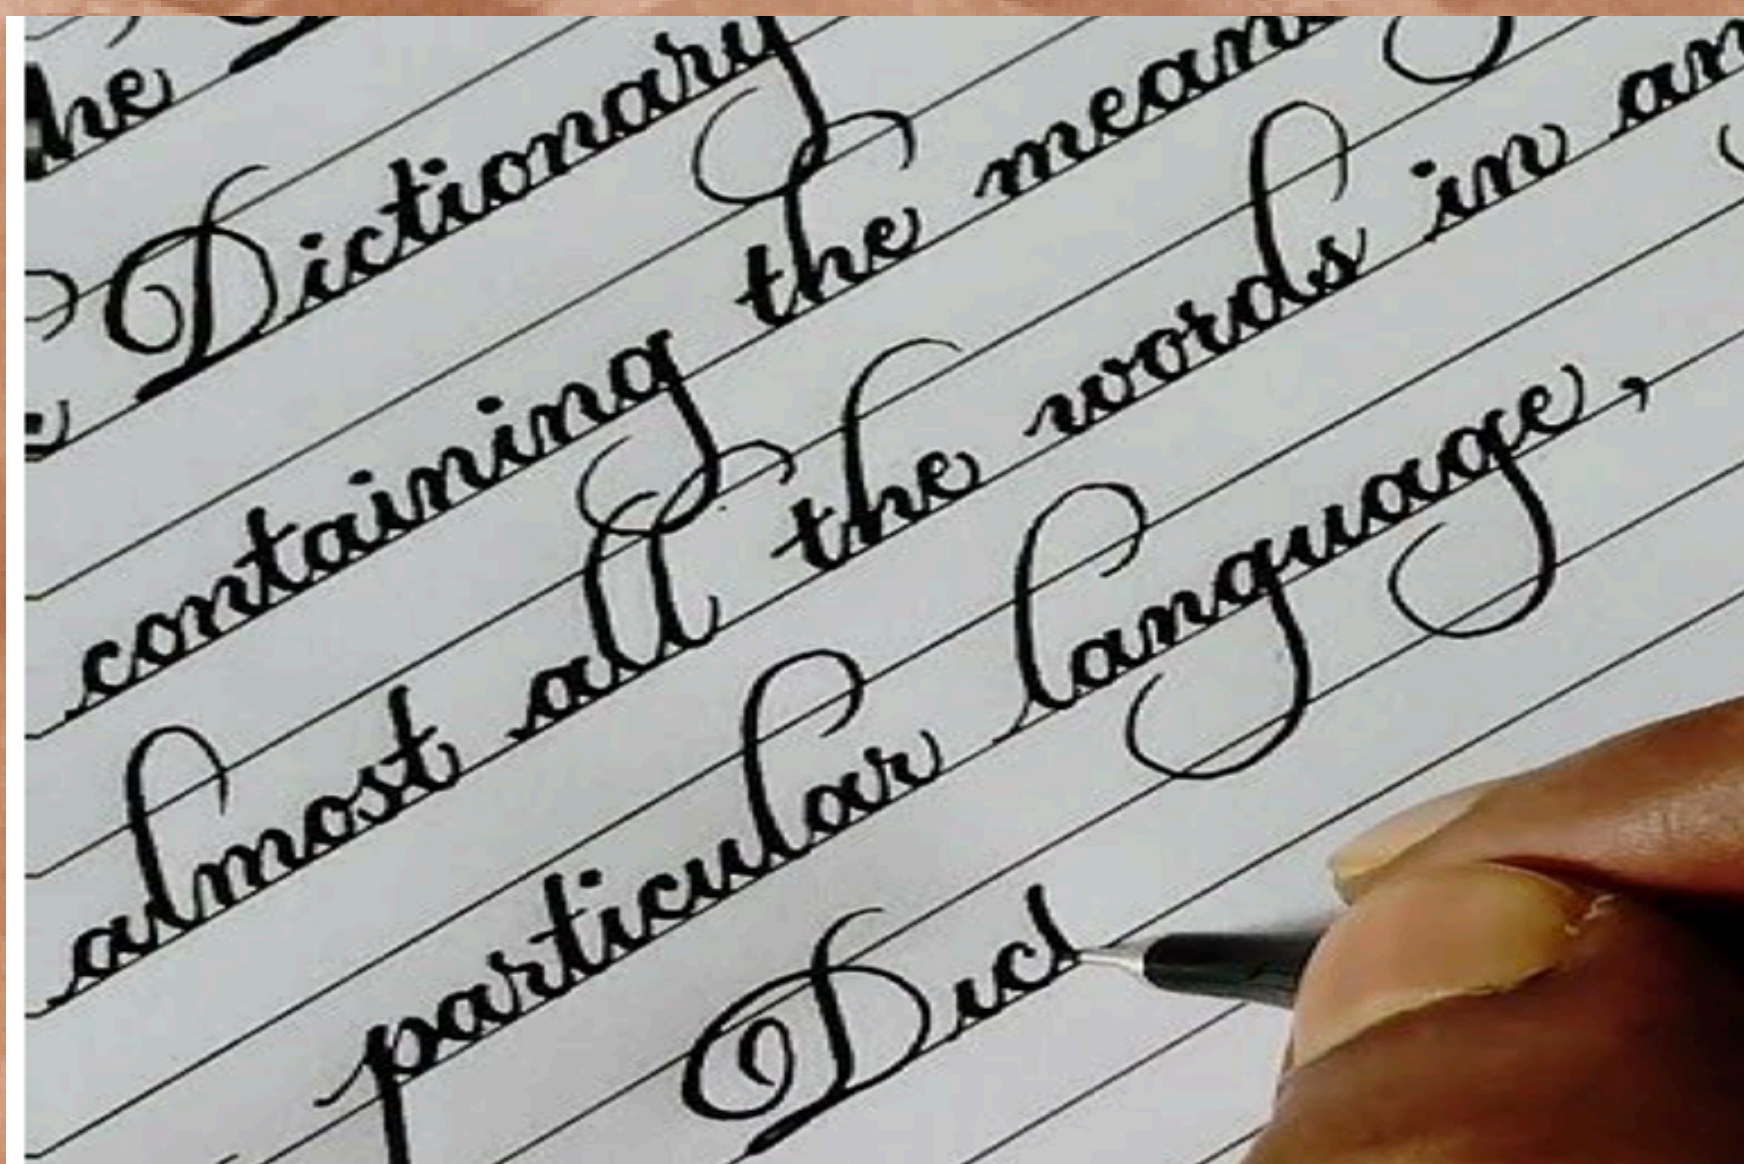 he
Dictionary
containing the
almost all the words in
particular language,
Dict